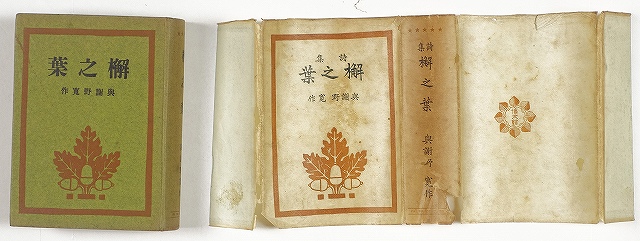 檞之葉
與謝野寛作
詩集
檞之葉
與謝野寛作
詩集
檞之葉
與謝野寛作